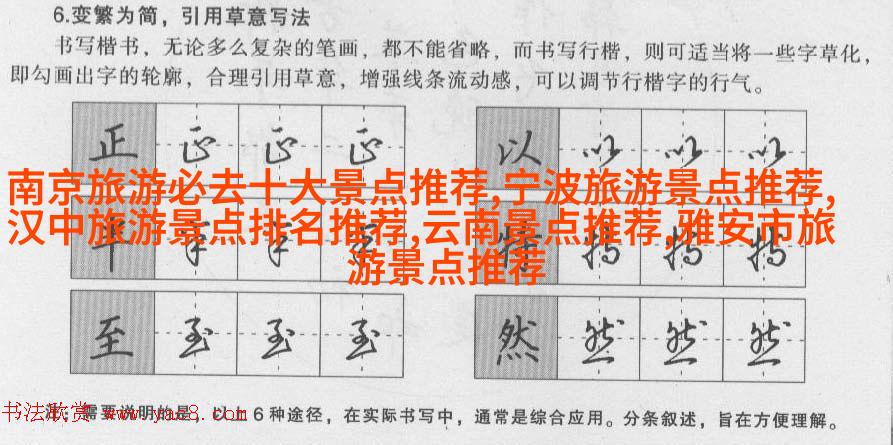 6.变繁为简，引用草意写法
书写楷书，无论多么复杂的笔画，都不能省略，而书写行楷，则可适当将一些字草化，
即勾画出字的轮廓，合理引用草意，增强线条流动感，可以调节行楷字的行气。
正 正 正 正 以 以 以 以
南京旅游必去十大景点推荐,宁波旅游景点推荐,
汉中旅游景点排名推荐,云南景点推荐,雅安市旅
游景点推荐
至 至 至 至 然 然 然 然
书法欣赏 www.yac8.com
注：需要说明的是，以上6种途径，在实际书写中，通常是综合应用。分条叙述，旨在方便理解。